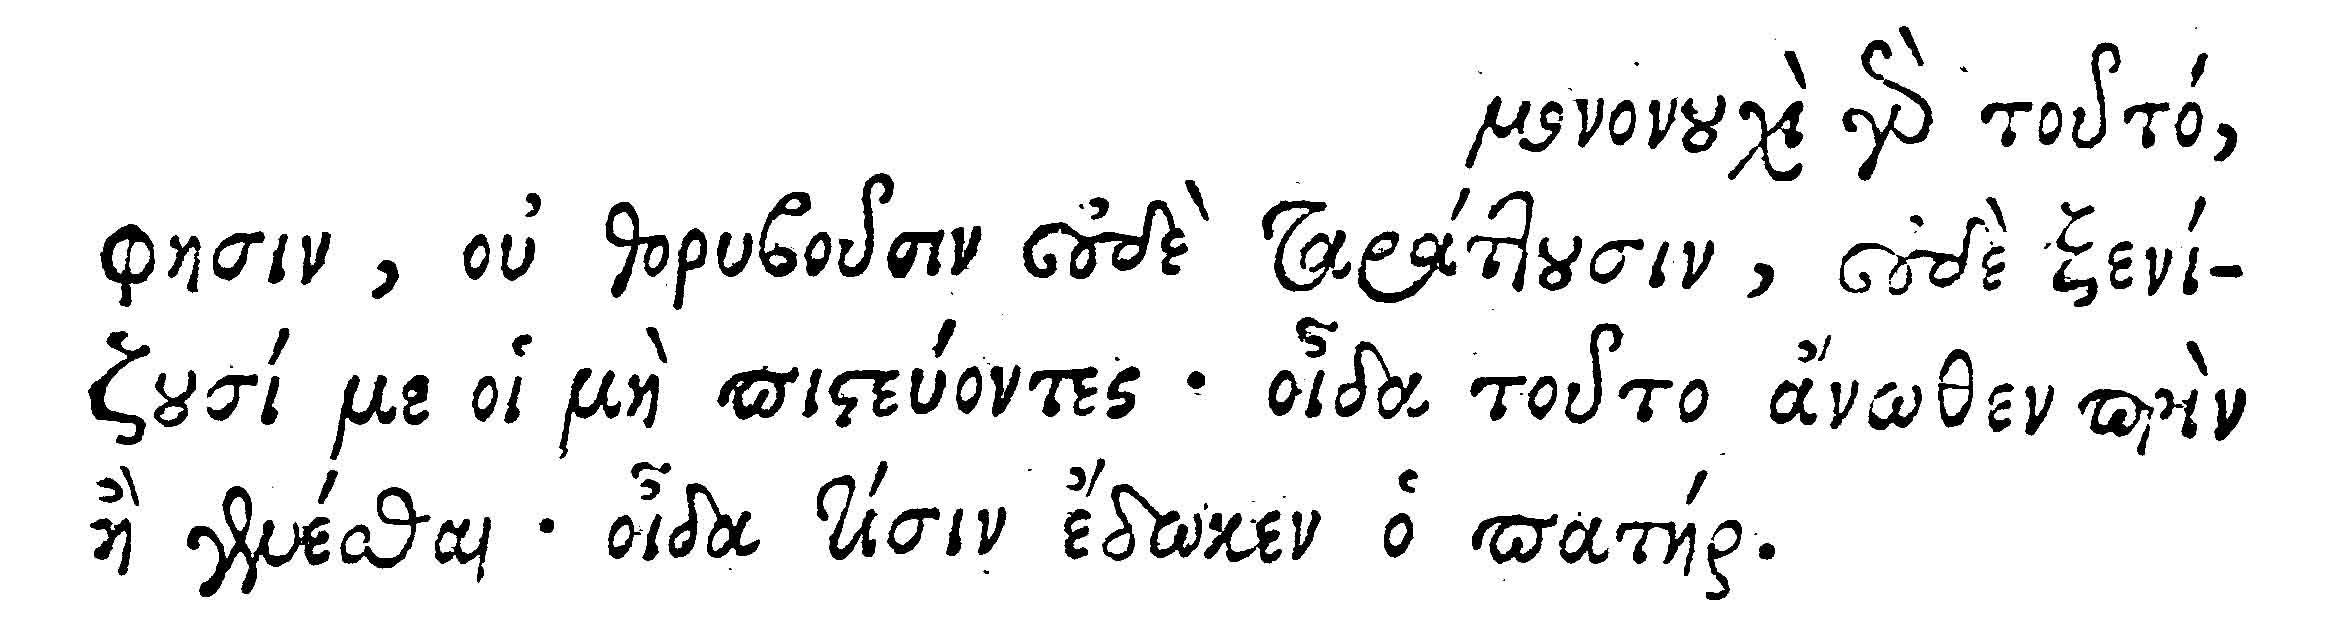 μενονουχὶ γὰρ τοῦτό,
φησιν, οὐ θορυβοῦσιν οὐδὲ ταράττουσιν, οὐδὲ ξενί-
ζουσί με οἱ μὴ πιστεύοντες · οἶδα τοῦτο ἄνωθεν πρὶν
ἢ γενέσθαι · οἶδα τίσιν ἔδωκεν ὁ πατήρ.